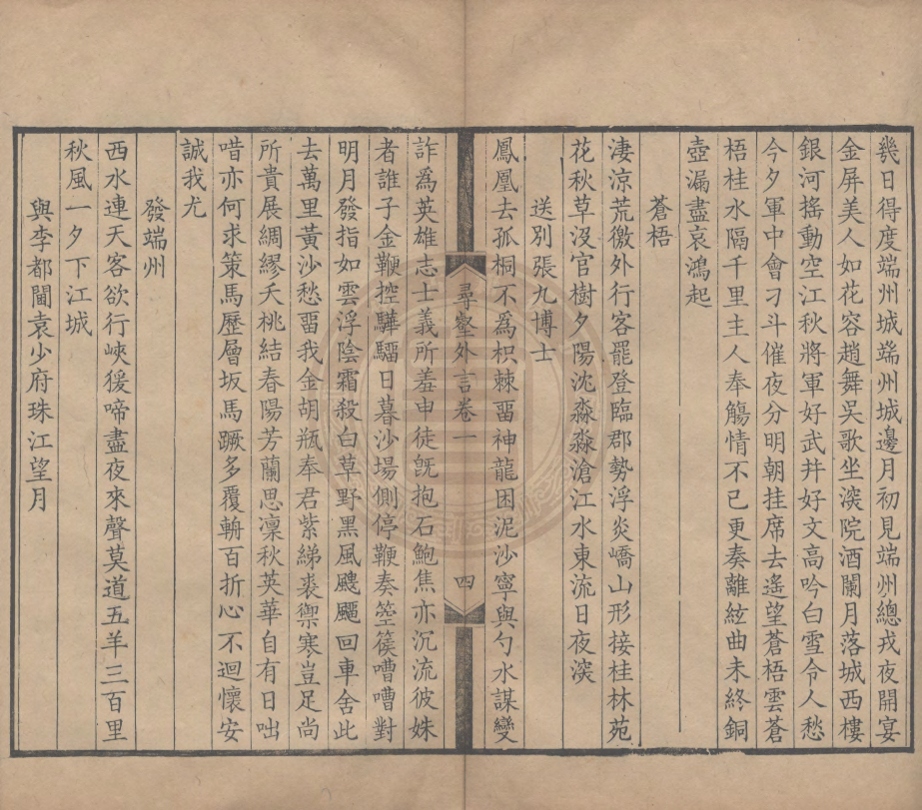 幾日得度端州城端州城邊月初見端州總戎夜開宴
金屏美人如花容趙舞吳歌坐深院酒闌月落城西樓
銀河搖動空江秋將軍好武幷好文高吟白雪令人愁
今夕軍中會刁斗催夜分明朝挂席去遙望蒼梧雲蒼
梧桂水隔千里主人奉觴情不已更奏離絃曲未終銅
壺漏盡哀鴻起
蒼梧
淒涼荒徼外行客罷登臨郡勢浮炎嶠山形接桂林苑
花秋草沒官樹夕陽沈淼淼滄江水東流日夜深
送別張九博士
鳳凰去孤桐不爲枳棘畱神龍困泥沙寧與勺水謀變
尋壑外言卷一
四
詐爲英雄志士義所羞申徒旣抱石鮑焦亦沉流彼姝
者誰子金鞭控驊騮日暮沙場側停鞭奏箜篌嘈嘈對
明月發指如雲浮陰霜殺白草野黑風颼飀回車舍此
去萬里黃沙愁畱我金胡瓶奉君紫綈裘禦寒豈足尚
所貴展綢繆夭桃結春陽芳蘭思凜秋英華自有日咄
唶亦何求策馬歷層坂馬蹶多覆輈百折心不迴懷安
誠我尤
發端州
西水連天客欲行峽猨啼盡夜來聲莫道五羊三百里
秋風一夕下江城
與李都閫袁少府珠江望月